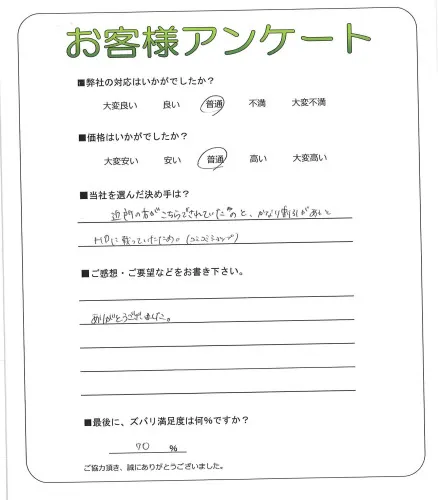 お客様アンケート
■弊社の対応はいかがでしたか？
大変良い 良い 普通 不満 大変不満
■価格はいかがでしたか？
大変安い 安い 普通 高い 大変高い
■当社を選んだ決め手は？
の方がこちらでされていたのと、かなり割引があると
HPに載っていたため。(コミコミショップ)
■ご感想・ご要望などをお書き下さい。
ありがとうございました。
■最後に、ズバリ満足度は何%ですか？
70 %
ご協力頂き、誠にありがとうございました。